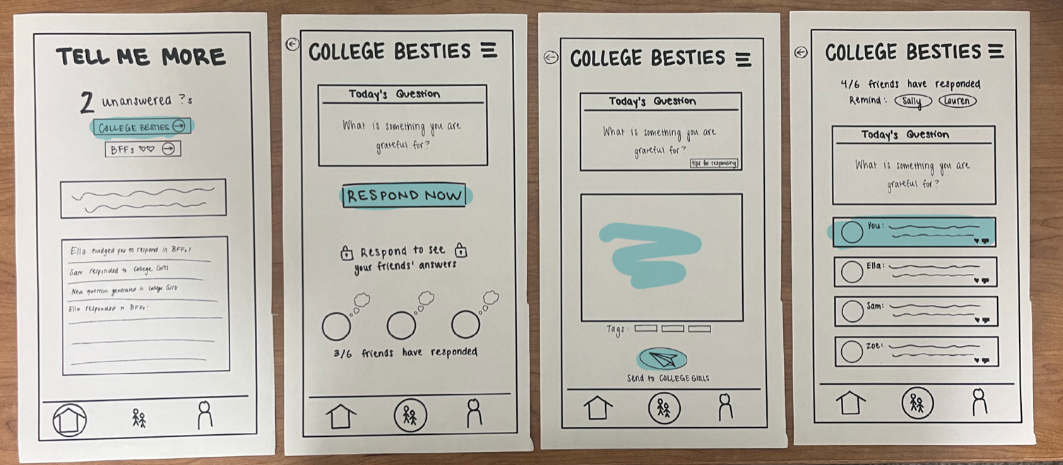 TELL ME MORE
2 unanswered ?s
COLLEGE BESTIES
BFFs
Ella nudged you to respond in BFFs!
Sam responded to College Girls
New question generated in College Girls
Ella responded in BFFs!
COLLEGE BESTIES
Today's Question
What is something you are
grateful for?
RESPOND NOW
Respond to see
your friends' answers
3/6 friends have responded
COLLEGE BESTIES
Today's Question
What is something you are
grateful for?
tips for responding
Tags:
Send to COLLEGE GIRLS
COLLEGE BESTIES
4/6 friends have responded
Remind: Sally Lauren
Today's Question
What is something you are
grateful for?
You:
Ella:
Sam:
Zoe: